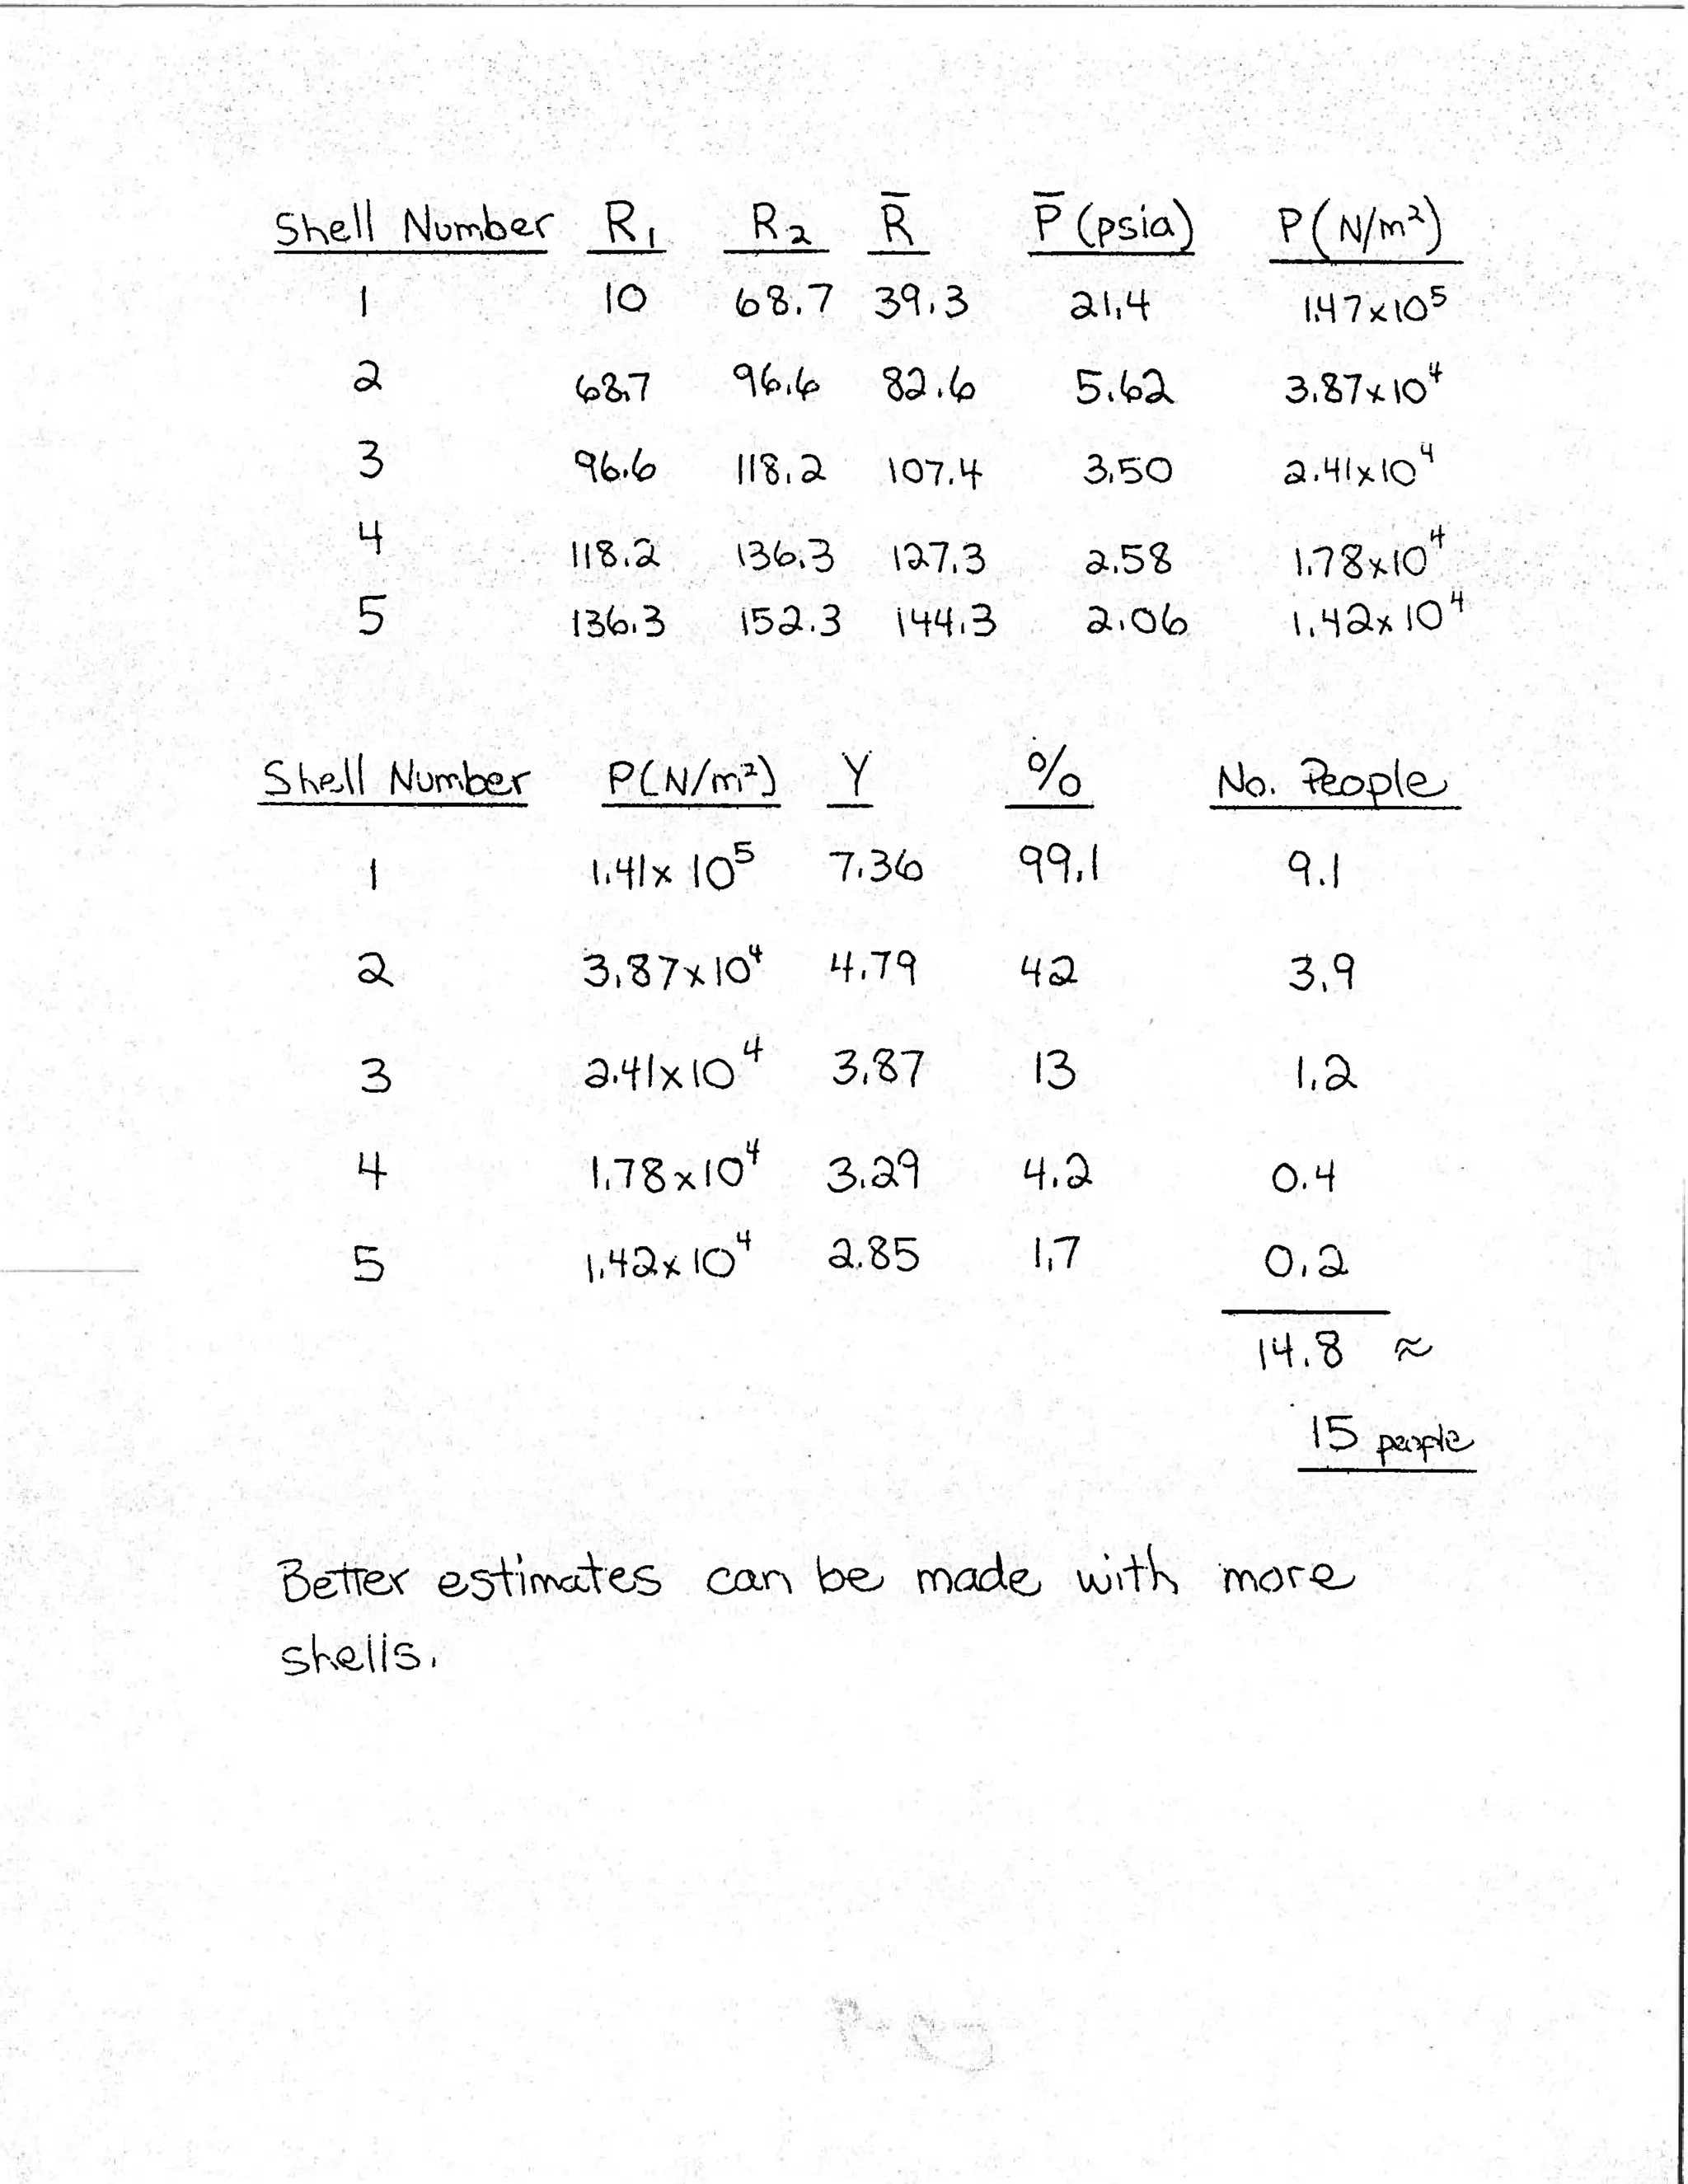 Shell Number R₁ R₂ R̄ P̄ (psia) P(N/m²)
1 10 68.7 39.3 21.4 1.47x10⁵
2 68.7 96.6 82.6 5.62 3.87x10⁴
3 96.6 118.2 107.4 3.50 2.41x10⁴
4 118.2 136.3 127.3 2.58 1.78x10⁴
5 136.3 152.3 144.3 2.06 1.42x10⁴
Shell Number P(N/m²) Y % No. People
1 1.41x10⁵ 7.36 99.1 9.1
2 3.87x10⁴ 4.79 42 3.9
3 2.41x10⁴ 3.87 13 1.2
4 1.78x10⁴ 3.29 4.2 0.4
5 1.42x10⁴ 2.85 1.7 0.2
14.8 ≈
15 people
Better estimates can be made with more
shells.